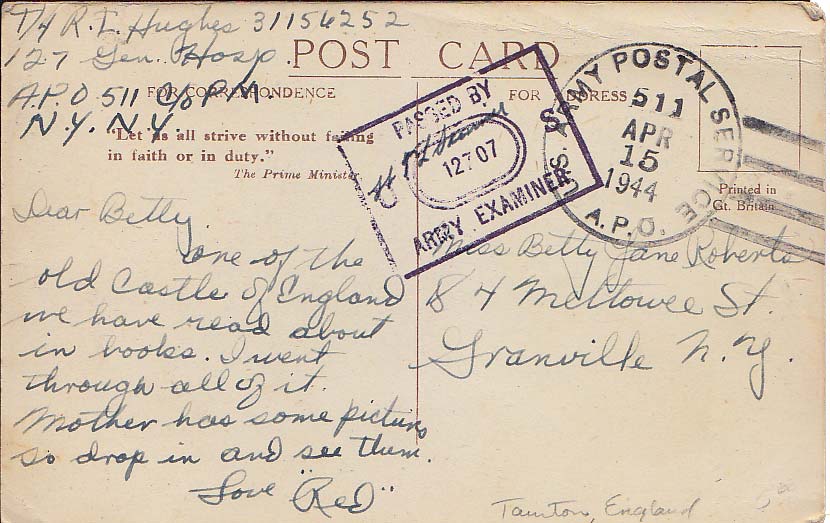 T/4 R. I. Hughes 31156252
127 Gen. Hosp.
A.P.O 511 c/o P.M.
N.Y. N.Y.
POST CARD
FOR CORRESPONDENCE
FOR ADDRESS
"Let us all strive without failing
in faith or in duty."
The Prime Minister.
PASSED BY
U S
12707
ARMY EXAMINER
U.S. ARMY POSTAL SERVICE
511
APR
15
1944
A.P.O.
Printed in
Gt. Britain
Dear Betty
one of the
old Castle of England
we have read about
in books. I went
through all of it.
Mother has some pictures
so drop in and see them.
Love "Red"
Miss Betty Jane Roberts
84 Mettowee St.
Granville N.Y.
Taunton, England